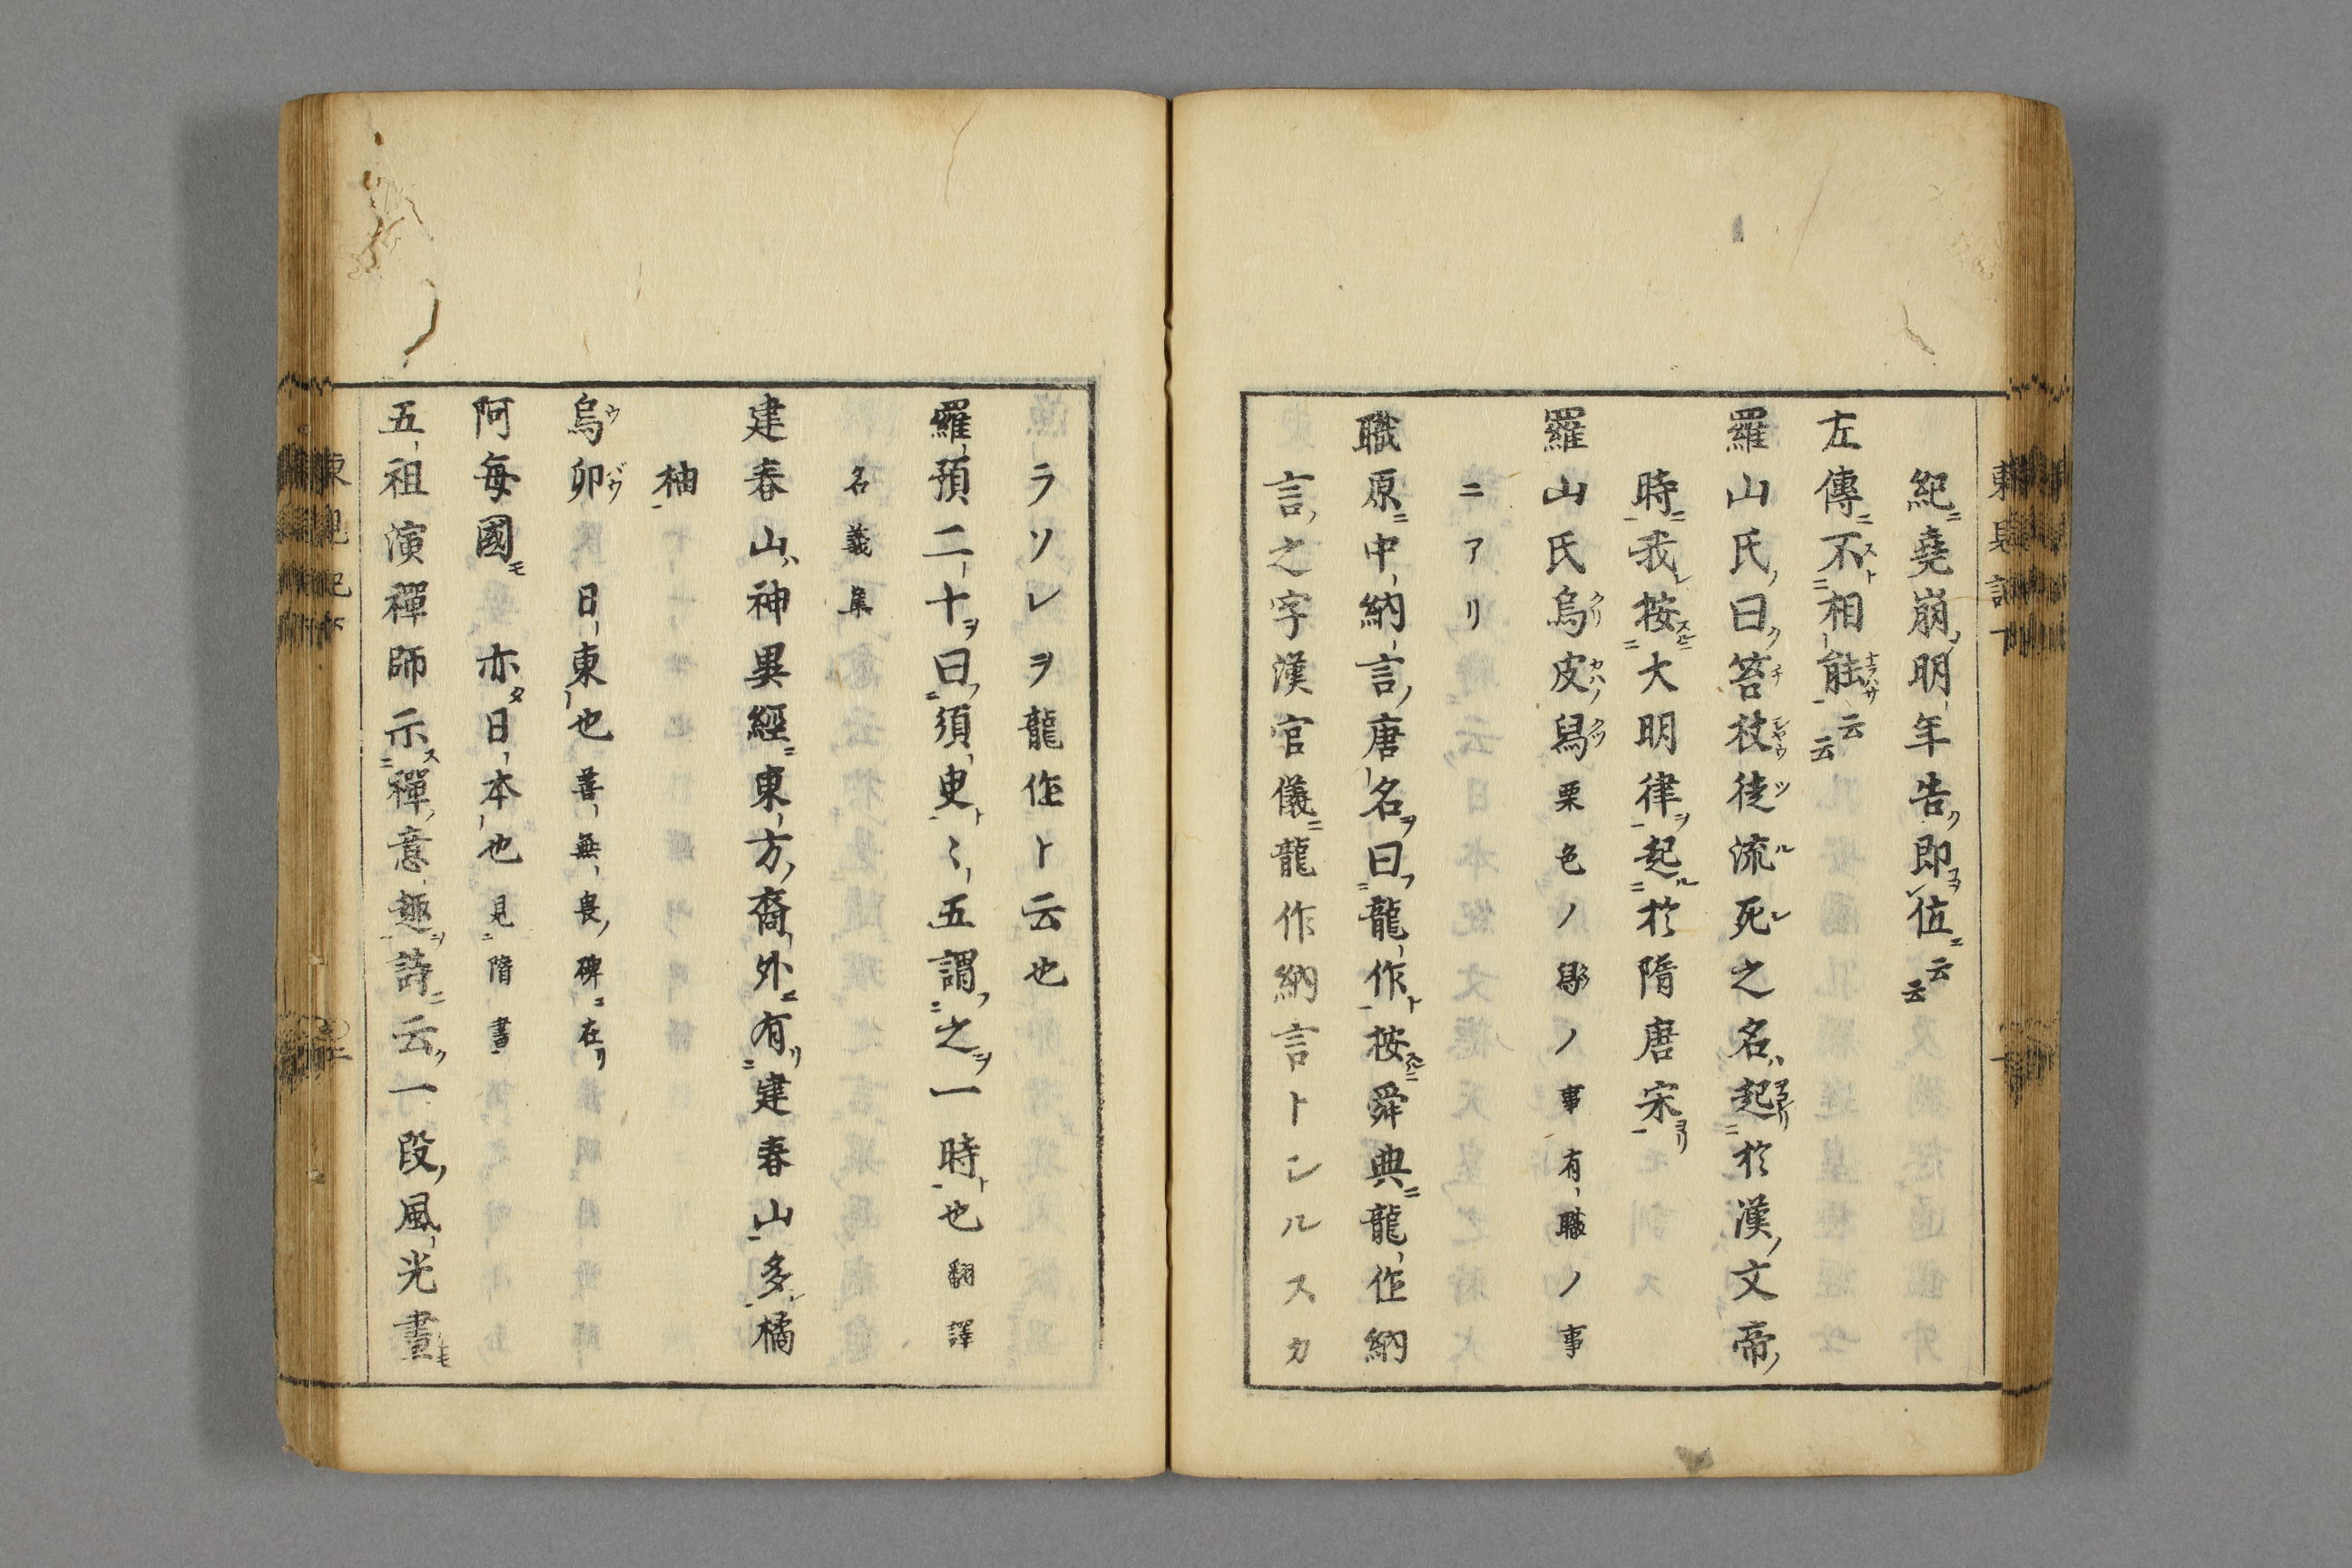 紀堯崩明年告即位云云
左傳不相能云云
羅山氏曰笞杖徒流死之名起於漢文帝
時我按大明律起於隋唐宋
羅山氏烏皮舄栗色ノ舄ノ事有職ノ事
ニアリ
職原中納言唐名曰龍作按舜典龍作納
言之字漢官儀龍作納言トシルスカ
ラソレヲ龍作ト云也
羅預二十曰須臾〻五謂之一時也翻譯
名義集
建春山神異經東方裔外有建春山多橘
柚
烏卯日東也善無畏碑在
阿每國亦日本也見隋書
五祖演禪師示禪意趣詩云一段風光畫